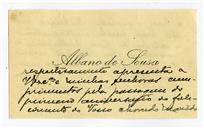 Albano de Sousa
respeitosamente apresenta a
V. Ex.ª e minhas senhoras cum-
primentos pela passagem do
primeiro aniversário do fale-
cimento do Vosso chorado